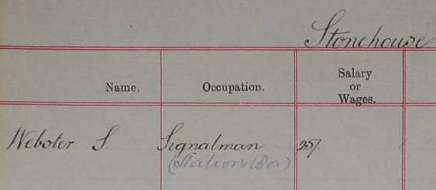 Stonehouse
Name. Occupation. Salary or Wages.
Webster S. Signalman 25/
(Station Box)